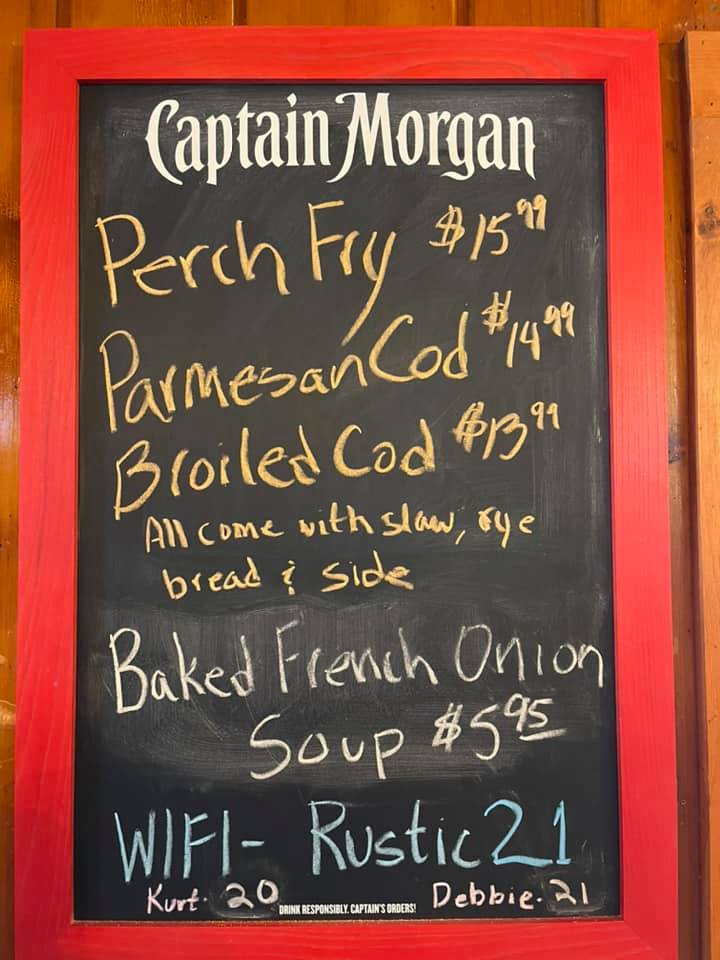 Captain Morgan
Perch Fry $15.99
Parmesan Cod $14.99
Broiled Cod $13.99
All come with slaw, rye
bread & side
Baked French Onion
Soup $5.95
WIFI- Rustic21
Kurt. 20 DRINK RESPONSIBLY. CAPTAIN'S ORDERS! Debbie. 21